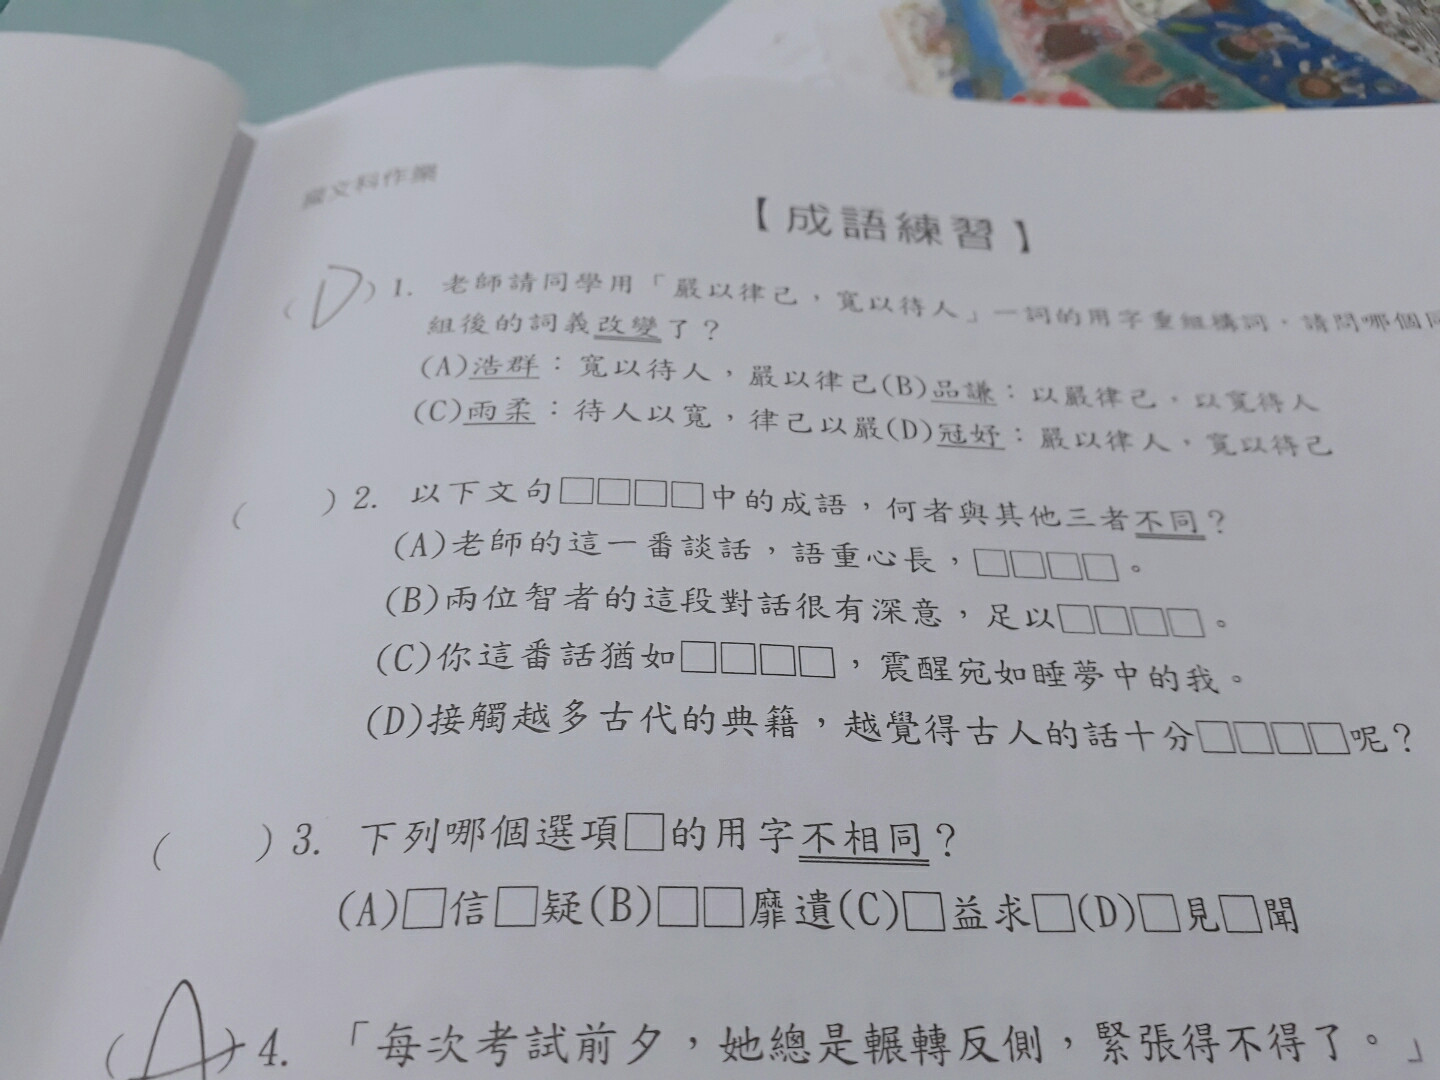 國文科作業
【成語練習】
(D)1. 老師請同學用「嚴以律己，寬以待人」一詞的用字重組構詞，請問哪個同
組後的詞義改變了？
(A)浩群：寬以待人，嚴以律己(B)品謙：以嚴律己，以寬待人
(C)雨柔：待人以寬，律己以嚴(D)冠妤：嚴以律人，寬以待己
( )2. 以下文句□□□□中的成語，何者與其他三者不同？
(A)老師的這一番談話，語重心長，□□□□。
(B)兩位智者的這段對話很有深意，足以□□□□。
(C)你這番話猶如□□□□，震醒宛如睡夢中的我。
(D)接觸越多古代的典籍，越覺得古人的話十分□□□□呢？
( )3. 下列哪個選項□的用字不相同？
(A)□信□疑(B)□□靡遺(C)□益求□(D)□見□聞
(A)4. 「每次考試前夕，她總是輾轉反側，緊張得不得了。」